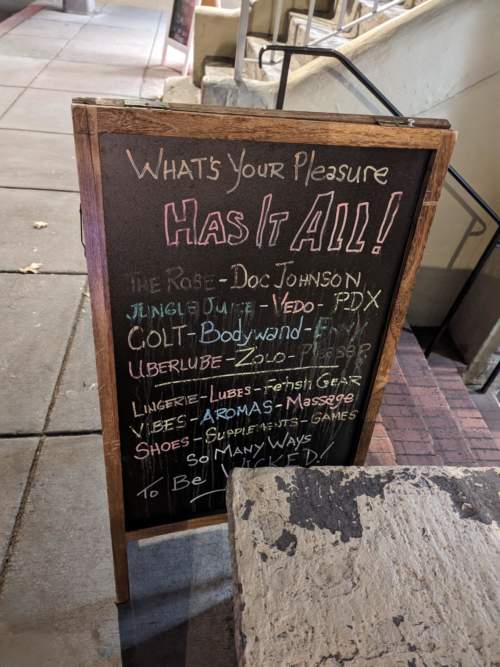 WHAT'S YOUR PleasURe
HAS IT ALL!
THE ROSE - DOC JOHNSON
JUNGLE JUICE - VEDO - PDX
COLT - Bodywand -
UBERLUBE - ZOLO - PLEASER
LINGERIE - LUBES - FeTiSH GEAR
VIBES - AROMAS - Massage
SHOES - SUPPLEMENTS - GAMES
SO MANY WAYS
To Be WICKED!